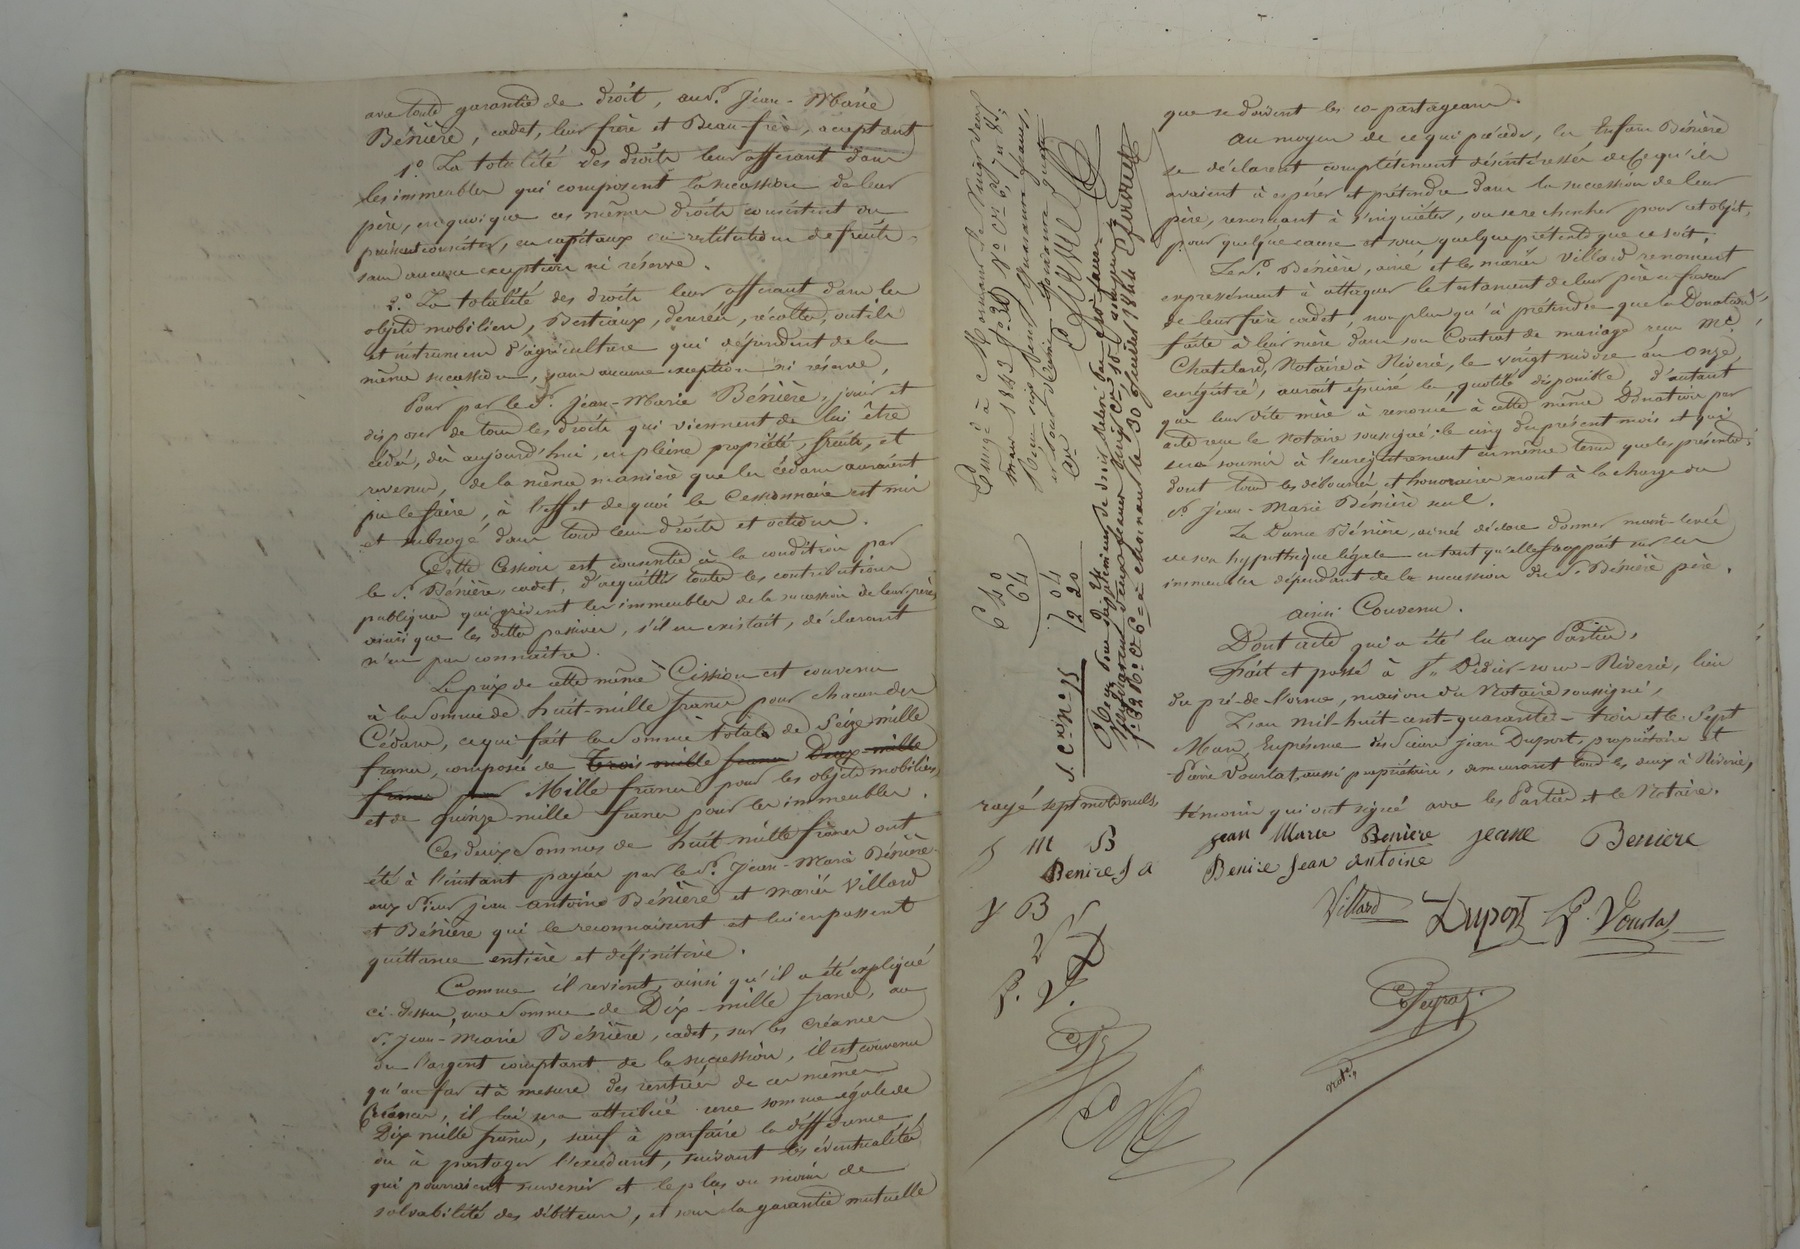 avec toute garantie de droit, au Sr. Jean-Marie
Bénière, cadet, leur frère et Beau-frère, acceptant
1.o La totalité des droits leur afférant dans
les immeubles qui composent la succession de leur
père, en quoi que ces mêmes droits consistent ou
puissent consister, en capitaux ou restitution de fruits
sans aucune exception ni réserve.
2.o La totalité des droits leur afférant dans les
objets mobiliers, Bestiaux, denrées, récoltes, outils
et instrumens d'agriculture qui dépendent de la
même succession, sans aucune exception ni réserve,
Pour par le Sr. Jean-Marie Bénière, jouir et
disposer de tous les droits qui viennent de lui être
cédés, dès aujourd'hui, en pleine propriété, fruits, et
revenus, de la même manière que les cédans auraient
pu le faire, à l'effet de quoi le Cessionnaire est mis
et subrogé dans tous leurs droits et actions.
Cette Cession est consentie à la condition par
le Sr. Bénière, cadet, d'acquitter toutes les contributions
publiques qui grèvent les immeubles de la succession de leur père
ainsi que les dettes passives, s'il en existait, déclarant
n'en pas connaître.
Le prix de cette même Cession est convenu
à la Somme de huit-mille francs pour chacun des
Cédans, ce qui fait la Somme totale de Seize-mille
francs, composée de Trois mille francs Deux-mille
francs pour Mille francs pour les objets mobiliers
et de quinze-mille francs pour les immeubles.
Ces deux Sommes de huit-mille francs ont
été à l'instant payées par le Sr. Jean-Marie Bénière
aux Sieur Jean-Antoine Bénière et mariés Villard
et Bénière qui le reconnaissent et lui en passent
quittance entière et définitive.
Comme il revient, ainsi qu'il a été expliqué
ci-dessus, une Somme de Dix-mille francs, au
Sr. Jean-Marie Bénière, cadet, sur les créances
ou l'argent comptant de la succession, il est convenu
qu'au fur et à mesure des rentrées de ces mêmes
Créances, il lui sera attribué une somme égale de
Dix mille francs, sauf à parfaire la différence
ou à partager l'excédant, suivant les éventualités
qui pourraient survenir et le plus ou moins de
solvabilité des débiteurs, et sous la garantie mutuelle
que se doivent les co-partageans.
Au moyen de ce qui précède, les Enfans Bénière
se déclarent complètement désintéressés de ce qu'ils
avaient à espérer et prétendre dans la succession de leur
père, renonçant à s'inquiéter, ou se rechercher pour cet objet,
pour quelque cause et sous quelque prétexte que ce soit.
Le Sr. Bénière, ainé et les mariés Villard renoncent
expressément à attaquer le testament de leur père en faveur
de leur frère cadet, non plus qu'à prétendre que la Donation
faite à leur mère dans son Contrat de mariage reçu Me.
Chatelard, Notaire à Riverie, le vingt nivôse an onze,
enregistré, aurait épuisé la quotité disponible, d'autant
que leur dite mère a renoncé à cette même Donation par
acte reçu le Notaire soussigné, le cinq du présent mois et qui
sera soumis à l'enregistrement en même tems que les présentes,
dont tous les déboursés et honoraires seront à la charge du
Sr. Jean-Marie Bénière seul.
La Dame Bénière, ainée déclare donner main-levée
de son hypothèque légale en tant qu'elle frappait sur les
immeubles dépendant de la succession du Sr. Bénière père.
ainsi Convenu.
Dont acte qui a été lu aux Parties,
Fait et passé à St. Didier-sous-Riverie, lieu
du pré-de-l'orme, maison du Notaire soussigné,
L'an mil-huit-cent-quarante-trois et le Sept
Mars, En présence des Sieurs Jean Duport, propriétaire et
Pierre Vourlat, aussi propriétaire, demeurant tous les deux à Riverie,
témoins qui ont signé avec les Parties et le Notaire.
Jean Marie Beniere Jeane Beniere
Benière Jean Antoine
Villard Duport P. Vourlat
Peyrat
notre.
Enregé à Mornant le
mars 1843 fo 30
640
64
704
7220
S. Cn no 75
a Mornant le 30 1844
rayé sept mots nuls,
J M B
Beniere J A
J B
V
D
P. V.